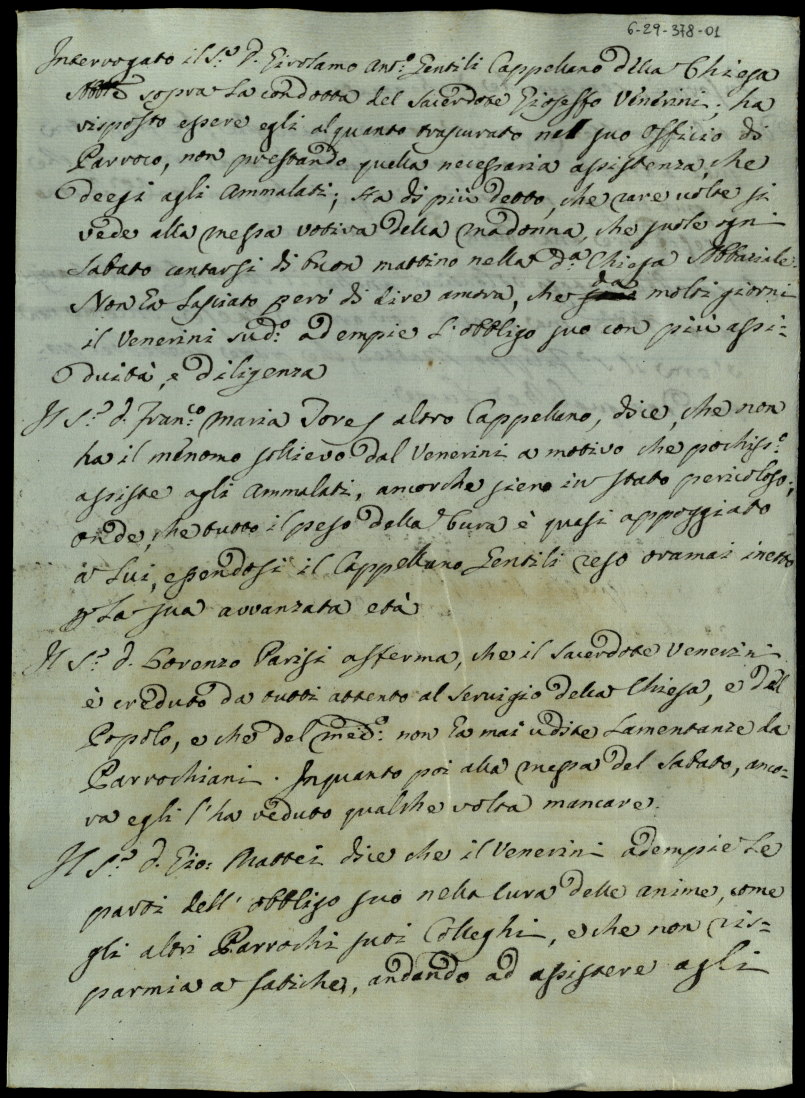 6-29-378-01
Interrogato il S.r D. Girolamo Ant.o Gentili Cappellano della Chiesa
sopra la condotta del Sacerdote Gioseffo Venerini; ha
risposto essere egli alquanto trascurato nel suo Officio di
Parroco, non prestando quella necessaria assistenza, che
deesi agli Ammalati; Ha di più detto, che rare volte si
vede alla messa votiva della Madonna, che suole ogni
Sabato cantarsi di buon mattino nella d.a Chiesa Abbaziale.
Non ha lasciato però di dire ancora, che da molti giorni
il Venerini sud.o adempie l'obbligo suo con più assi=
duità, e diligenza
Il S.r d. Fran.co Maria Tores altro Cappellano, dice, che non
ha il menomo sollievo dal Venerini a motivo che pochiss.o
assiste agli Ammalati, ancorche sieno in stato pericoloso;
onde, che tutto il peso della Cura è quasi appoggiato
a Lui, essendosi il Cappellano Gentili reso oramai inetto
p la sua avvanzata età
Il S.r d. Lorenzo Parisi afferma, che il Sacerdote Venerini
è creduto da tutti attento al servigio della Chiesa, e del
Popolo, e che del med.o non ha mai udite lamentanze da
Parrochiani. Inquanto poi alla messa del Sabato, anco=
ra egli l'ha veduto qualche volta mancare.
Il S.r d. Gio: Mattei dice che il Venerini adempie le
parti dell'obbligo suo nella Cura delle anime, come
gli altri Parrochi suoi Colleghi, e che non ris=
parmia a fatiche, andando ad assistere agli